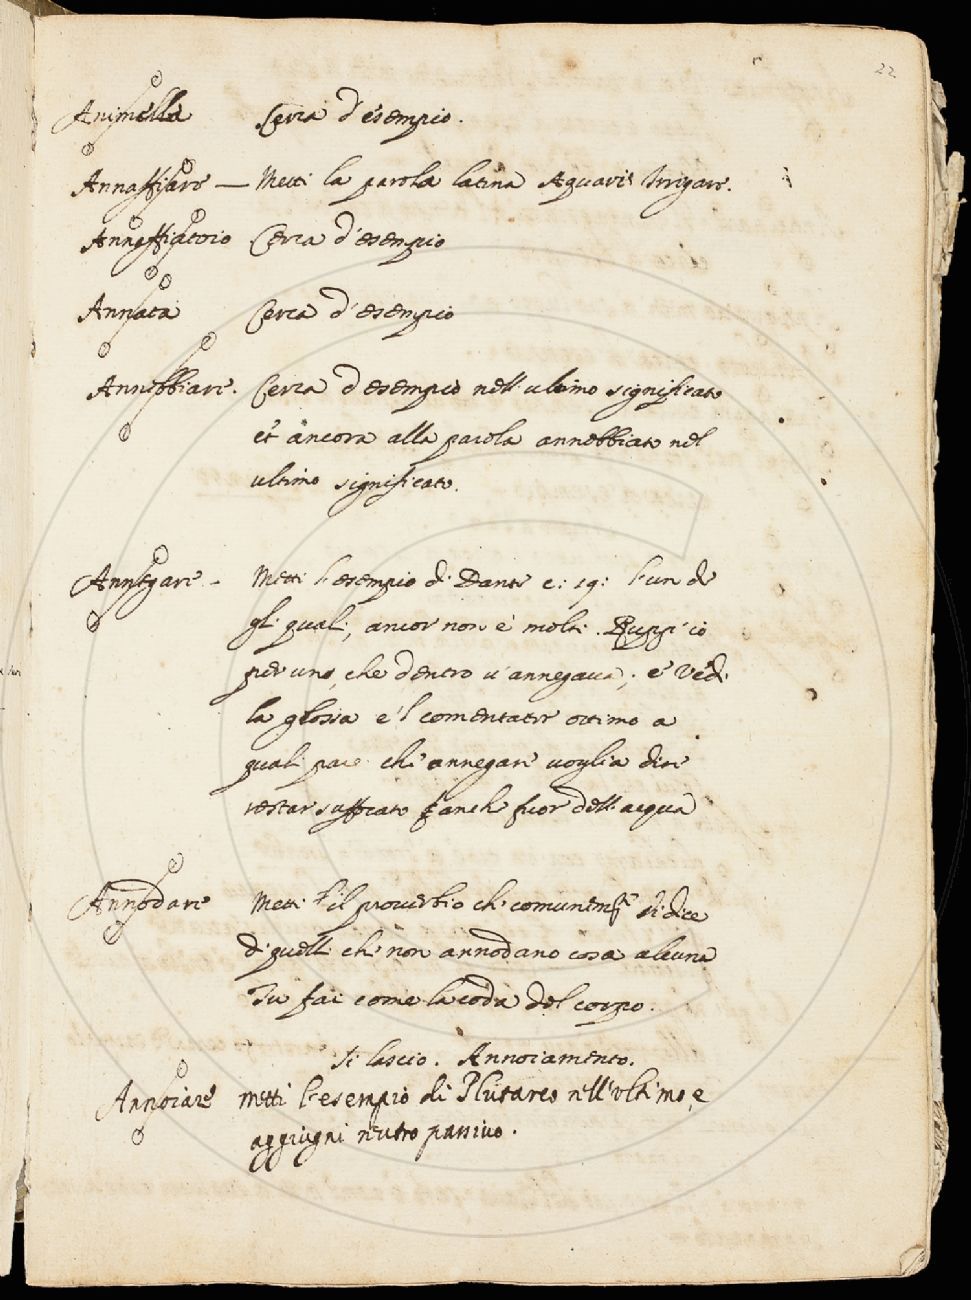 22
Animella Cerca d'esempio.
Annaffiare — Metti la parola latina Aquari Irrigare.
Annaffiatoio Cerca d'esempio
Annata Cerca d'esempio
Annebbiare. Cerca d'esempio nell'ultimo significato
et ancora alla parola annebbiato nel
ultimo significato.
Annegare - Metti l'esempio di Dante c: 19: l'un de
gli quali, ancor non è molt'. Ruppi io
per uno, che dentro v'annegava; e vedi
la glossa e 'l comentator ottimo a
quali pare che annegare voglia dire
restar suffocato anch fuor dell acqua
Annodare Metti il proverbio che comunem.te si dice
di quelli che non annodano cosa alcuna
Tu fai come la coda del corpo.
Si lascio. Annoiamento.
Annoiare metti l'esempio di Plutarco nell'ultimo, e
aggiugni neutro passivo.